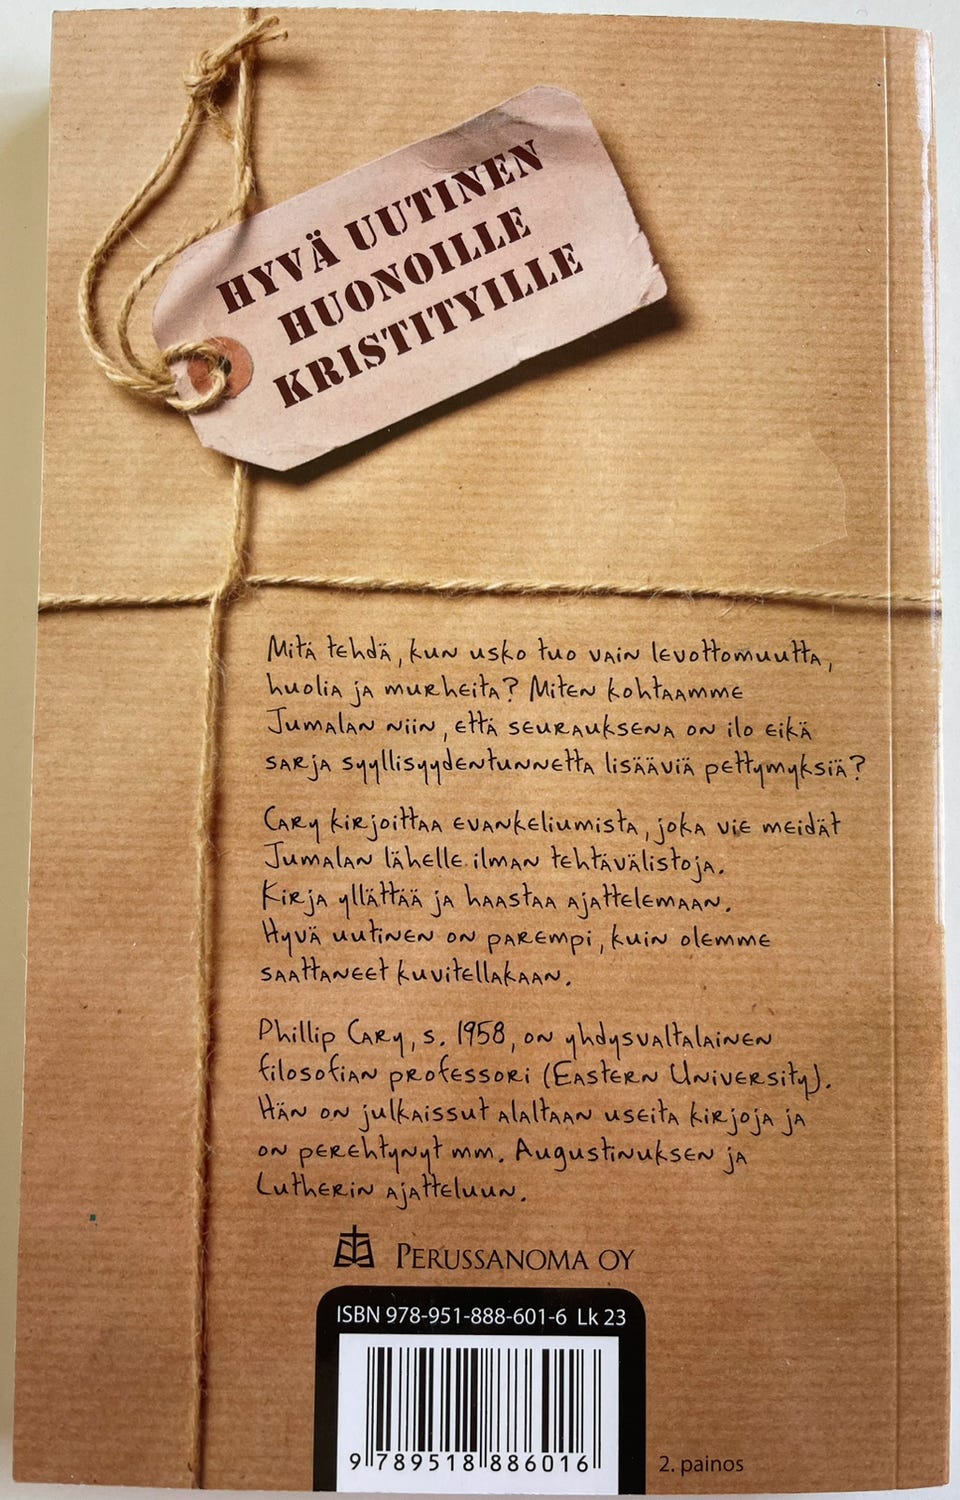 HYVÄ UUTINEN
HUONOILLE
KRISTITYILLE
Mitä tehdä, kun usko tuo vain levottomuutta,
huolia ja murheita? Miten kohtaamme
Jumalan niin, että seurauksena on ilo eikä
sarja syyllisyydentunnetta lisääviä pettymyksiä?
Cary kirjoittaa evankeliumista, joka vie meidät
Jumalan lähelle ilman tehtävälistoja.
Kirja yllättää ja haastaa ajattelemaan.
Hyvä uutinen on parempi, kuin olemme
saattaneet kuvitellakaan.
Phillip Cary, s. 1958, on yhdysvaltalainen
filosofian professori (Eastern University).
Hän on julkaissut alaltaan useita kirjoja ja
on perehtynyt mm. Augustinuksen ja
Lutherin ajatteluun.
PERUSSANOMA OY
ISBN 978-951-888-601-6 Lk 23
9 789518 886016
2. painos